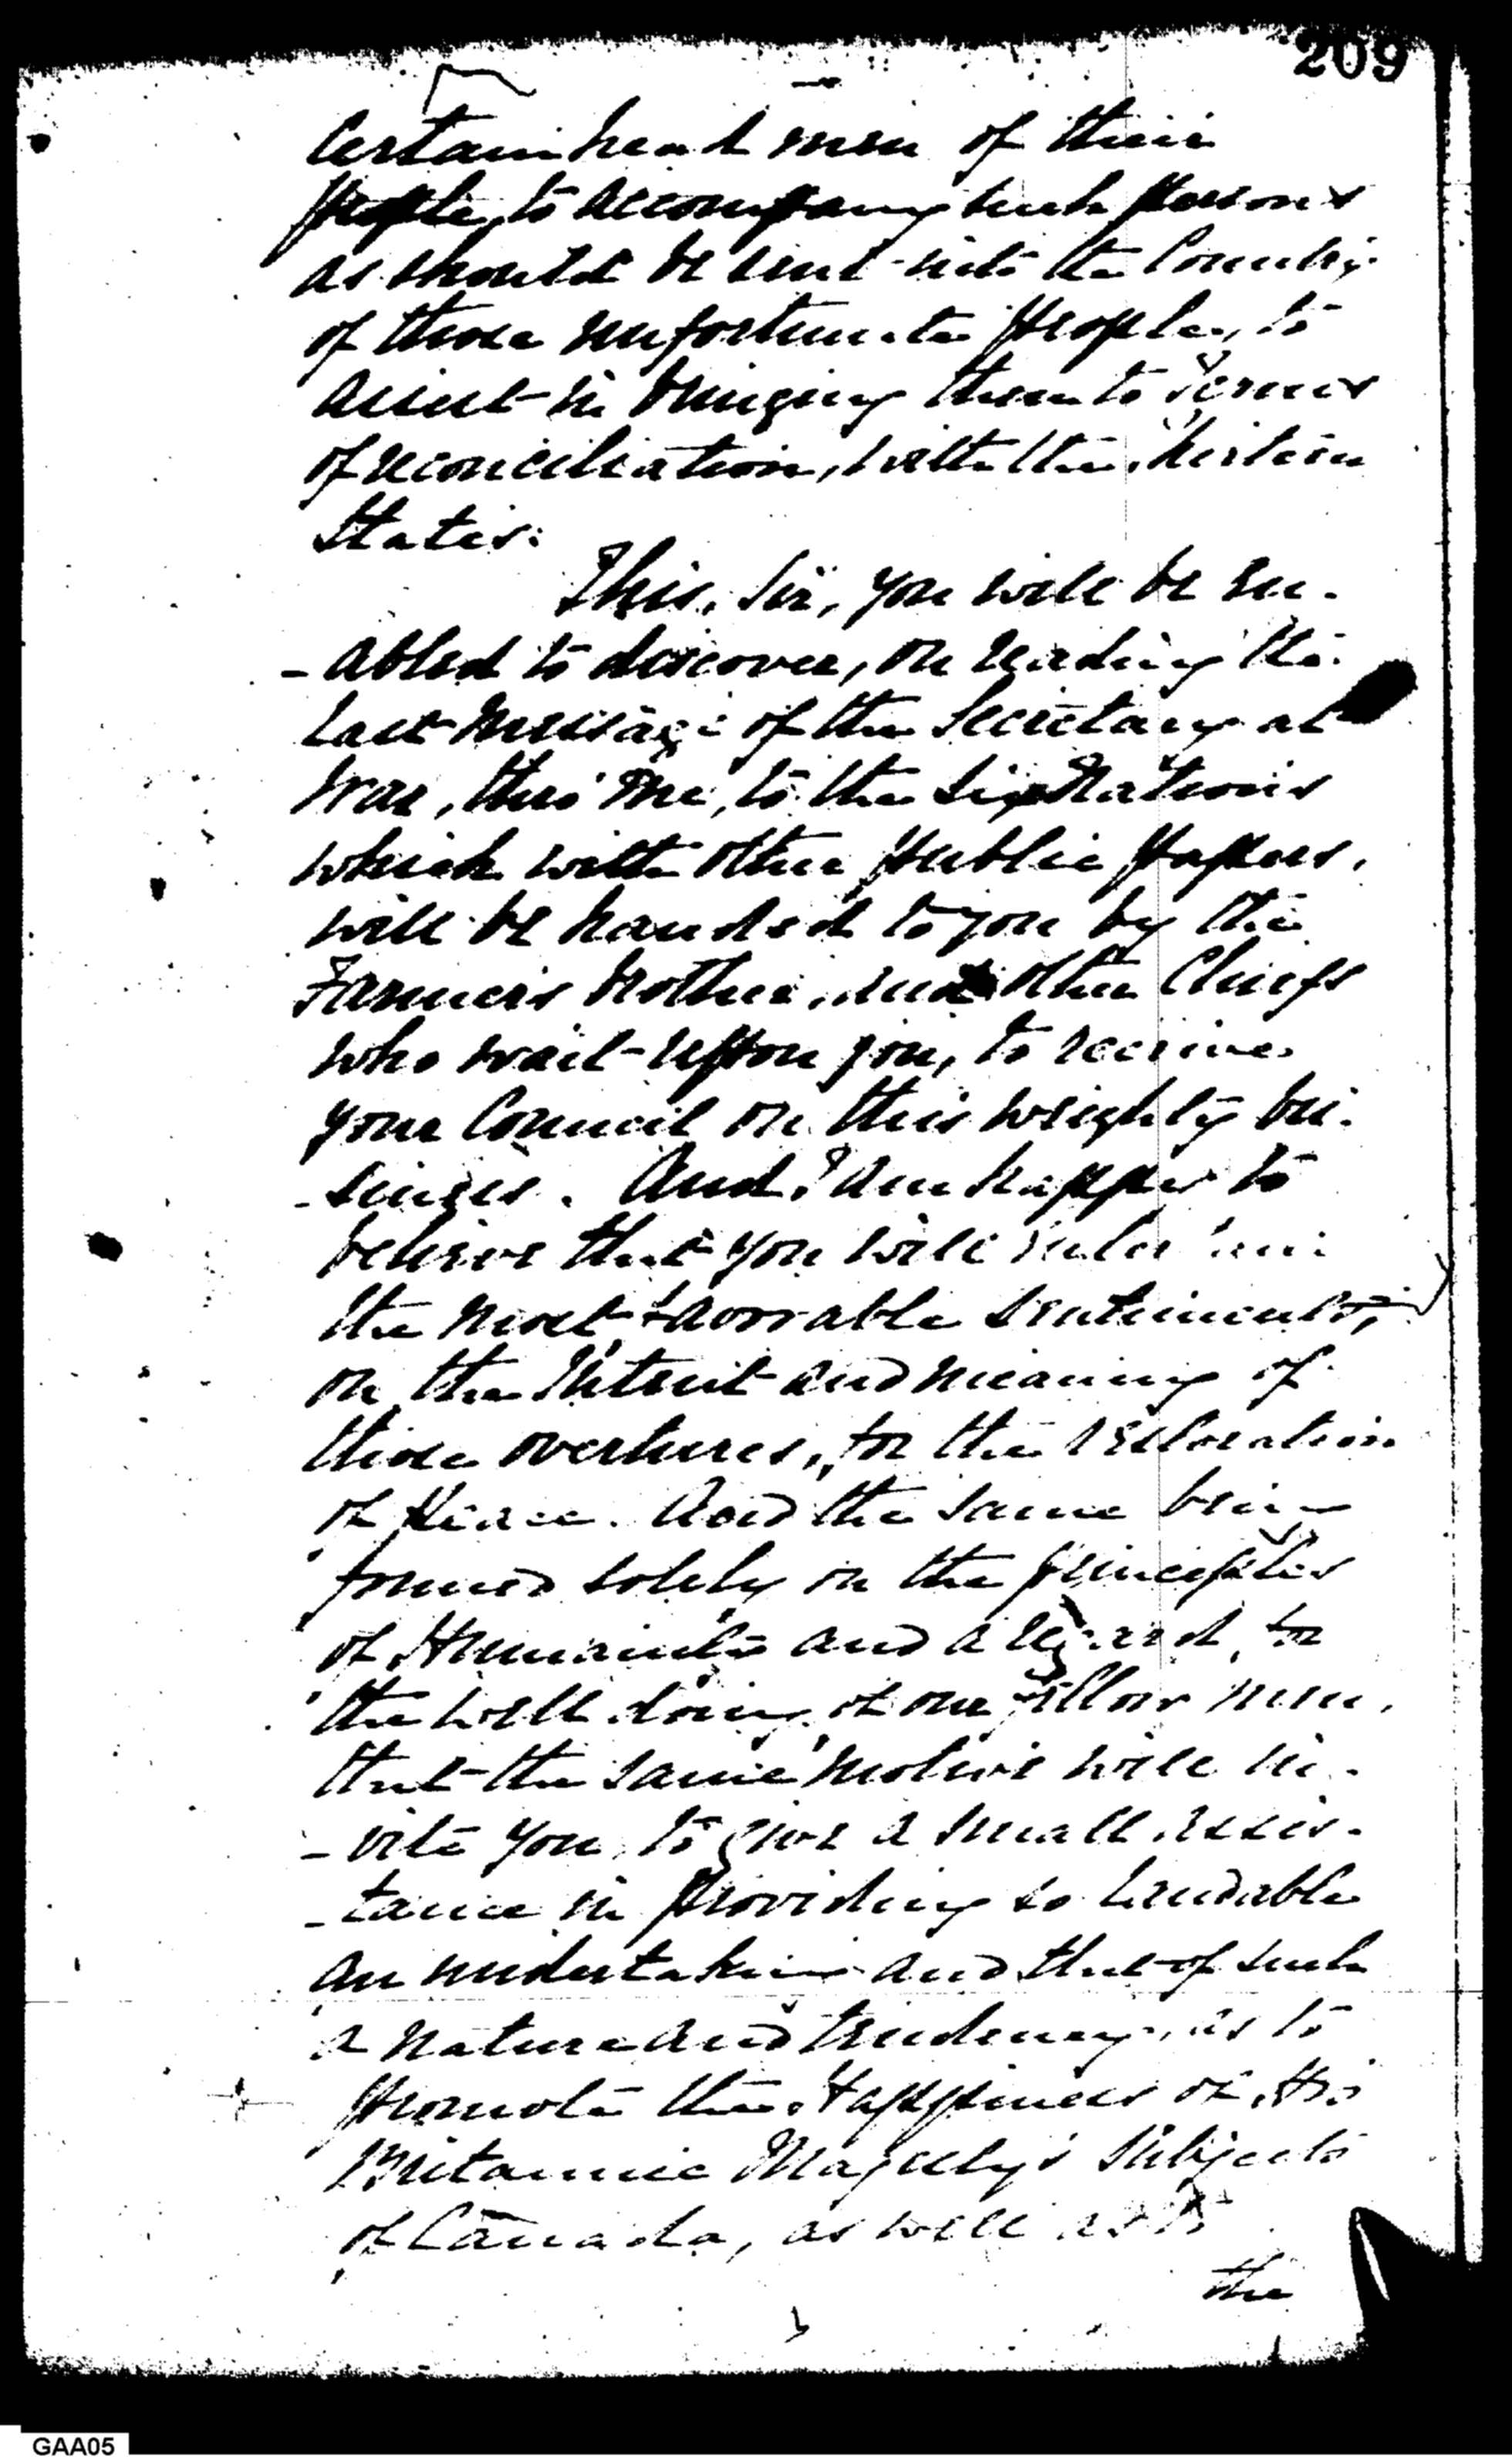 209
Certain head men of their
People, to accompany such persons
as should be sent into the Country
of those unfortunate People, to
assist in bringing them to Terms
of reconciliation, with the thirteen
States.
This, Sir, you will be en-
-abled to discover, on reading the
last message of the Secretary at
War, thro' me, to the Six Nations
which with other Public Papers,
will be handed to you by the
Farmer's Brother, and other Chiefs
who wait upon you, to receive
your Council on this weighty bu-
-siness. And I am happy to
believe that you will
the most Favorable sentiments,
on the Intent and meaning of
those overtures, for the restoration
of Peace. And the same being
formed solely on the principles
of Humanity and a regard, for
the well doing of our fellow men,
that the same motive will in-
-vite you, to give a small assis-
-tance in providing so laudable
an undertaking and that of such
a nature and tendency, as to
promote the Happiness of His
Britannic Majesty's Subjects
of Canada, as well as to
the
GAA05